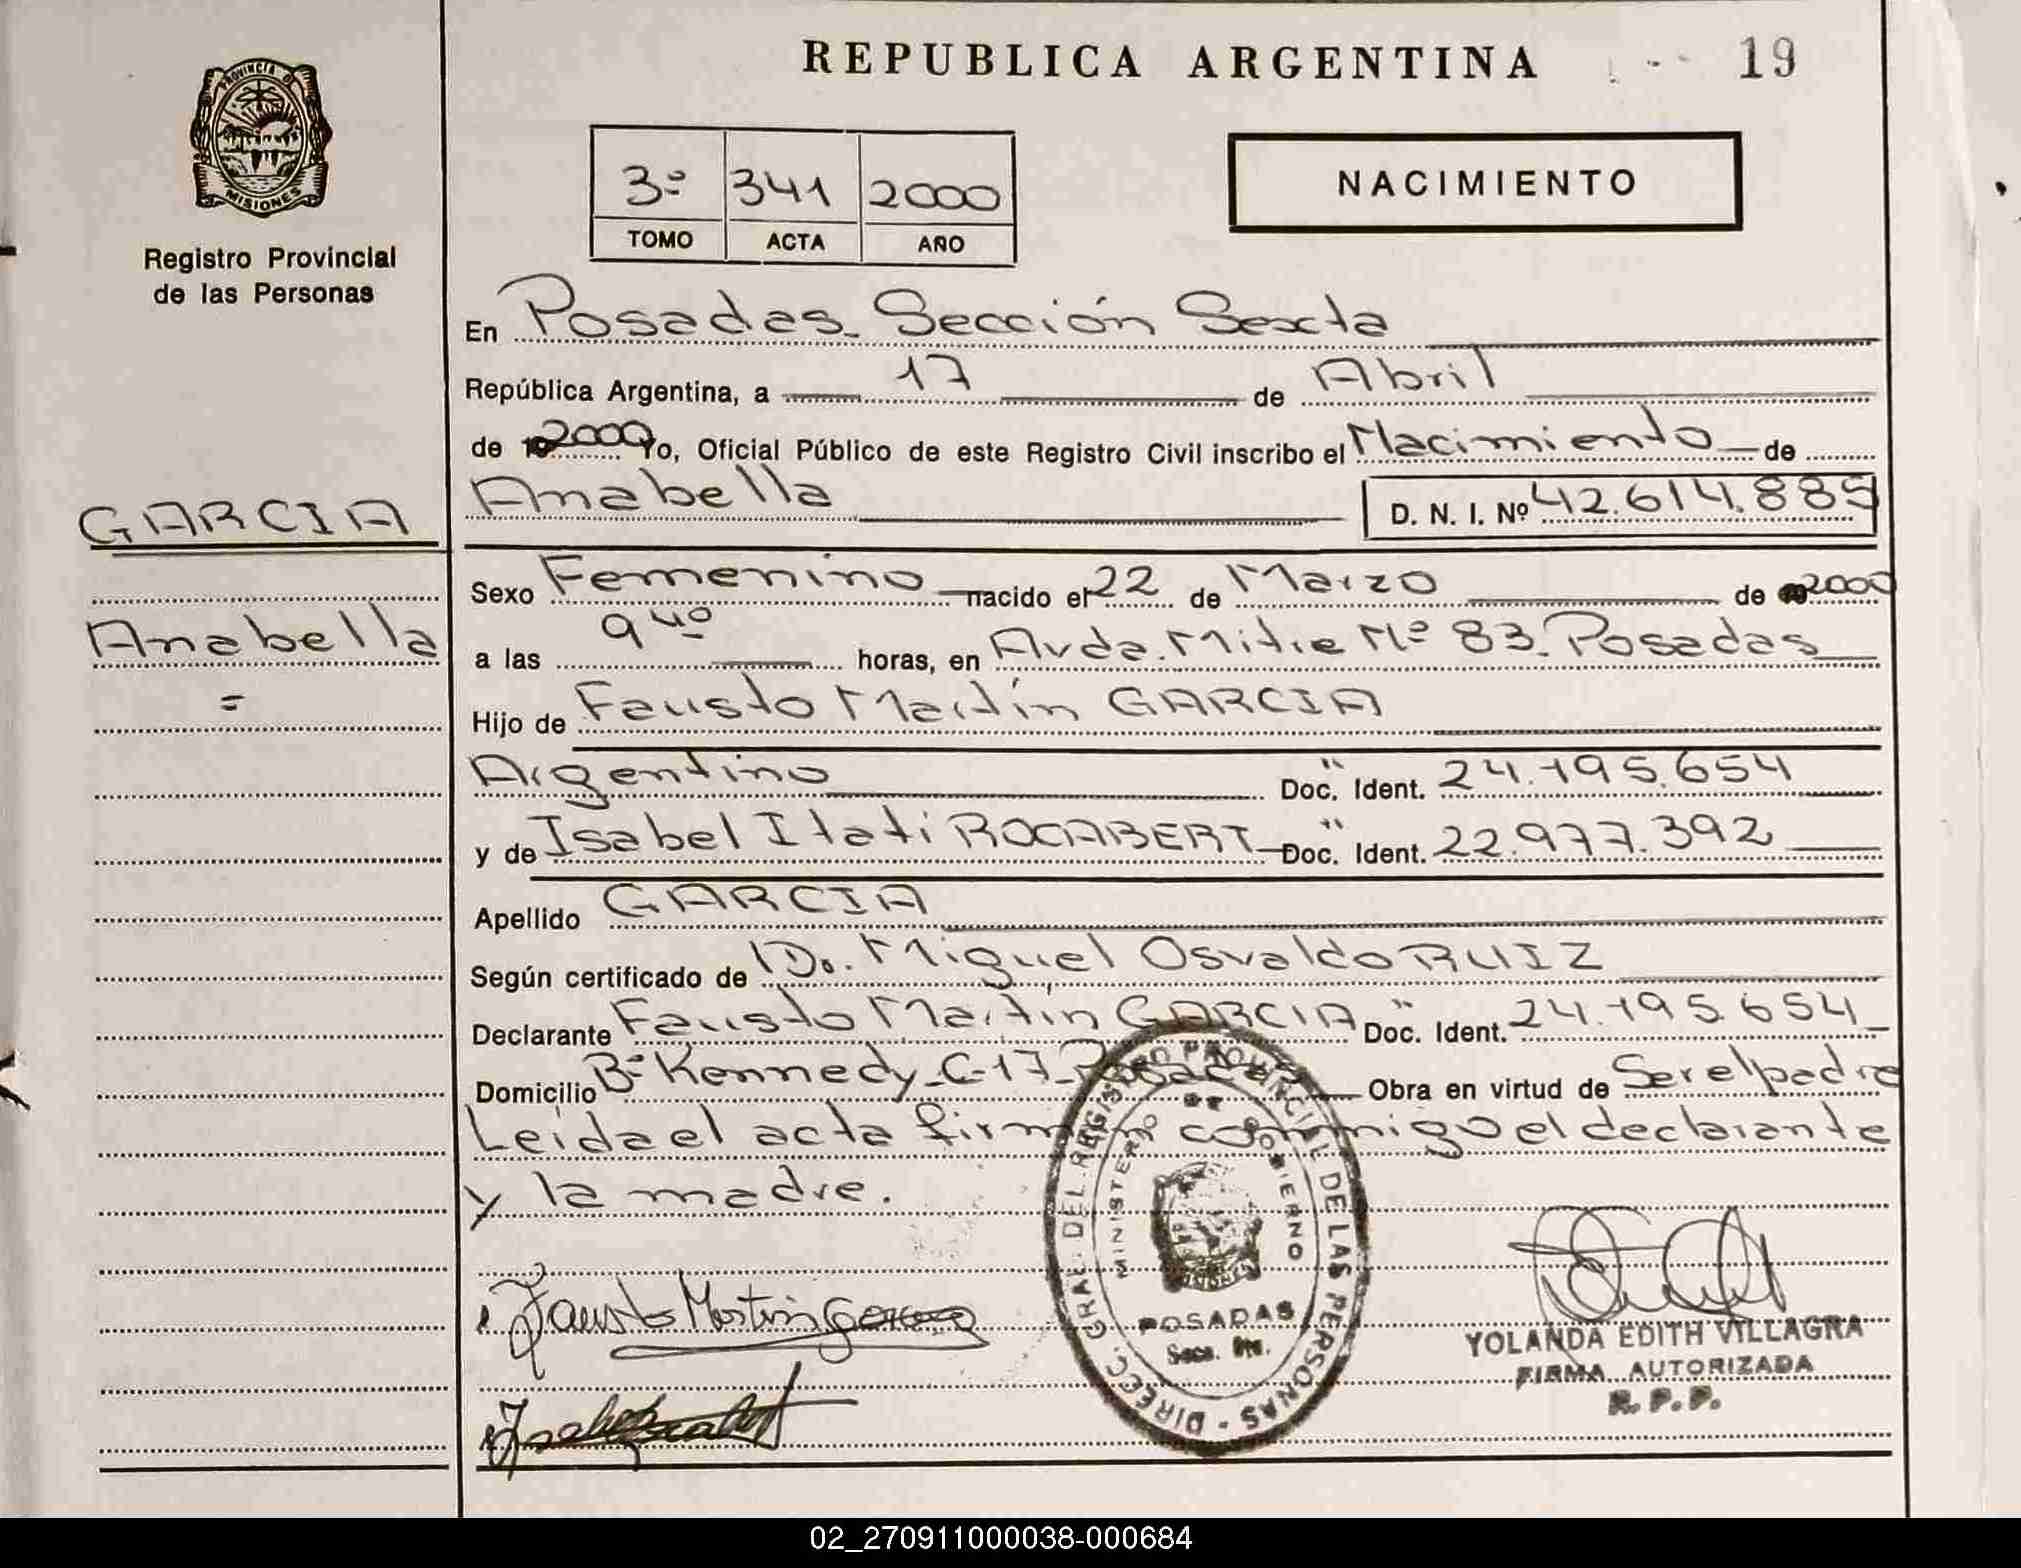 REPUBLICA ARGENTINA
19
PROVINCIA DE
MISIONES
Registro Provincial
de las Personas
3º 341 2000
TOMO ACTA AÑO
NACIMIENTO
En Posadas Sección Sexta
República Argentina, a 17 de Abril
de 2000 Yo, Oficial Público de este Registro Civil inscribo el Nacimiento de
GARCIA
Anabella D. N. I. Nº 42.614.885
Sexo Femenino nacido el 22 de Marzo de 2000
Anabella
=
a las 9 40 horas, en Avda. Mitre Nº 83 Posadas
Hijo de Fausto Martín GARCIA
Argentino Doc. Ident. 24.195.654
y de Isabel Itati ROCABERT Doc. Ident. 22.977.392
Apellido GARCIA
Según certificado de Dr. Miguel Osvaldo RUIZ
Declarante Fausto Martín GARCIA Doc. Ident. 24.195.654
Domicilio Bº Kennedy C-17 Posadas Obra en virtud de Ser el padre
Leida el acta firman conmigo el declarante
y la madre.
DIRECC. GRAL. DEL REGISTRO PROVINCIAL DE LAS PERSONAS
MINISTERIO DE GOBIERNO
POSADAS
Secc.
Fausto Martin Garcia
YOLANDA EDITH VILLAGRA
FIRMA AUTORIZADA
R. P. P.
02_270911000038-000684